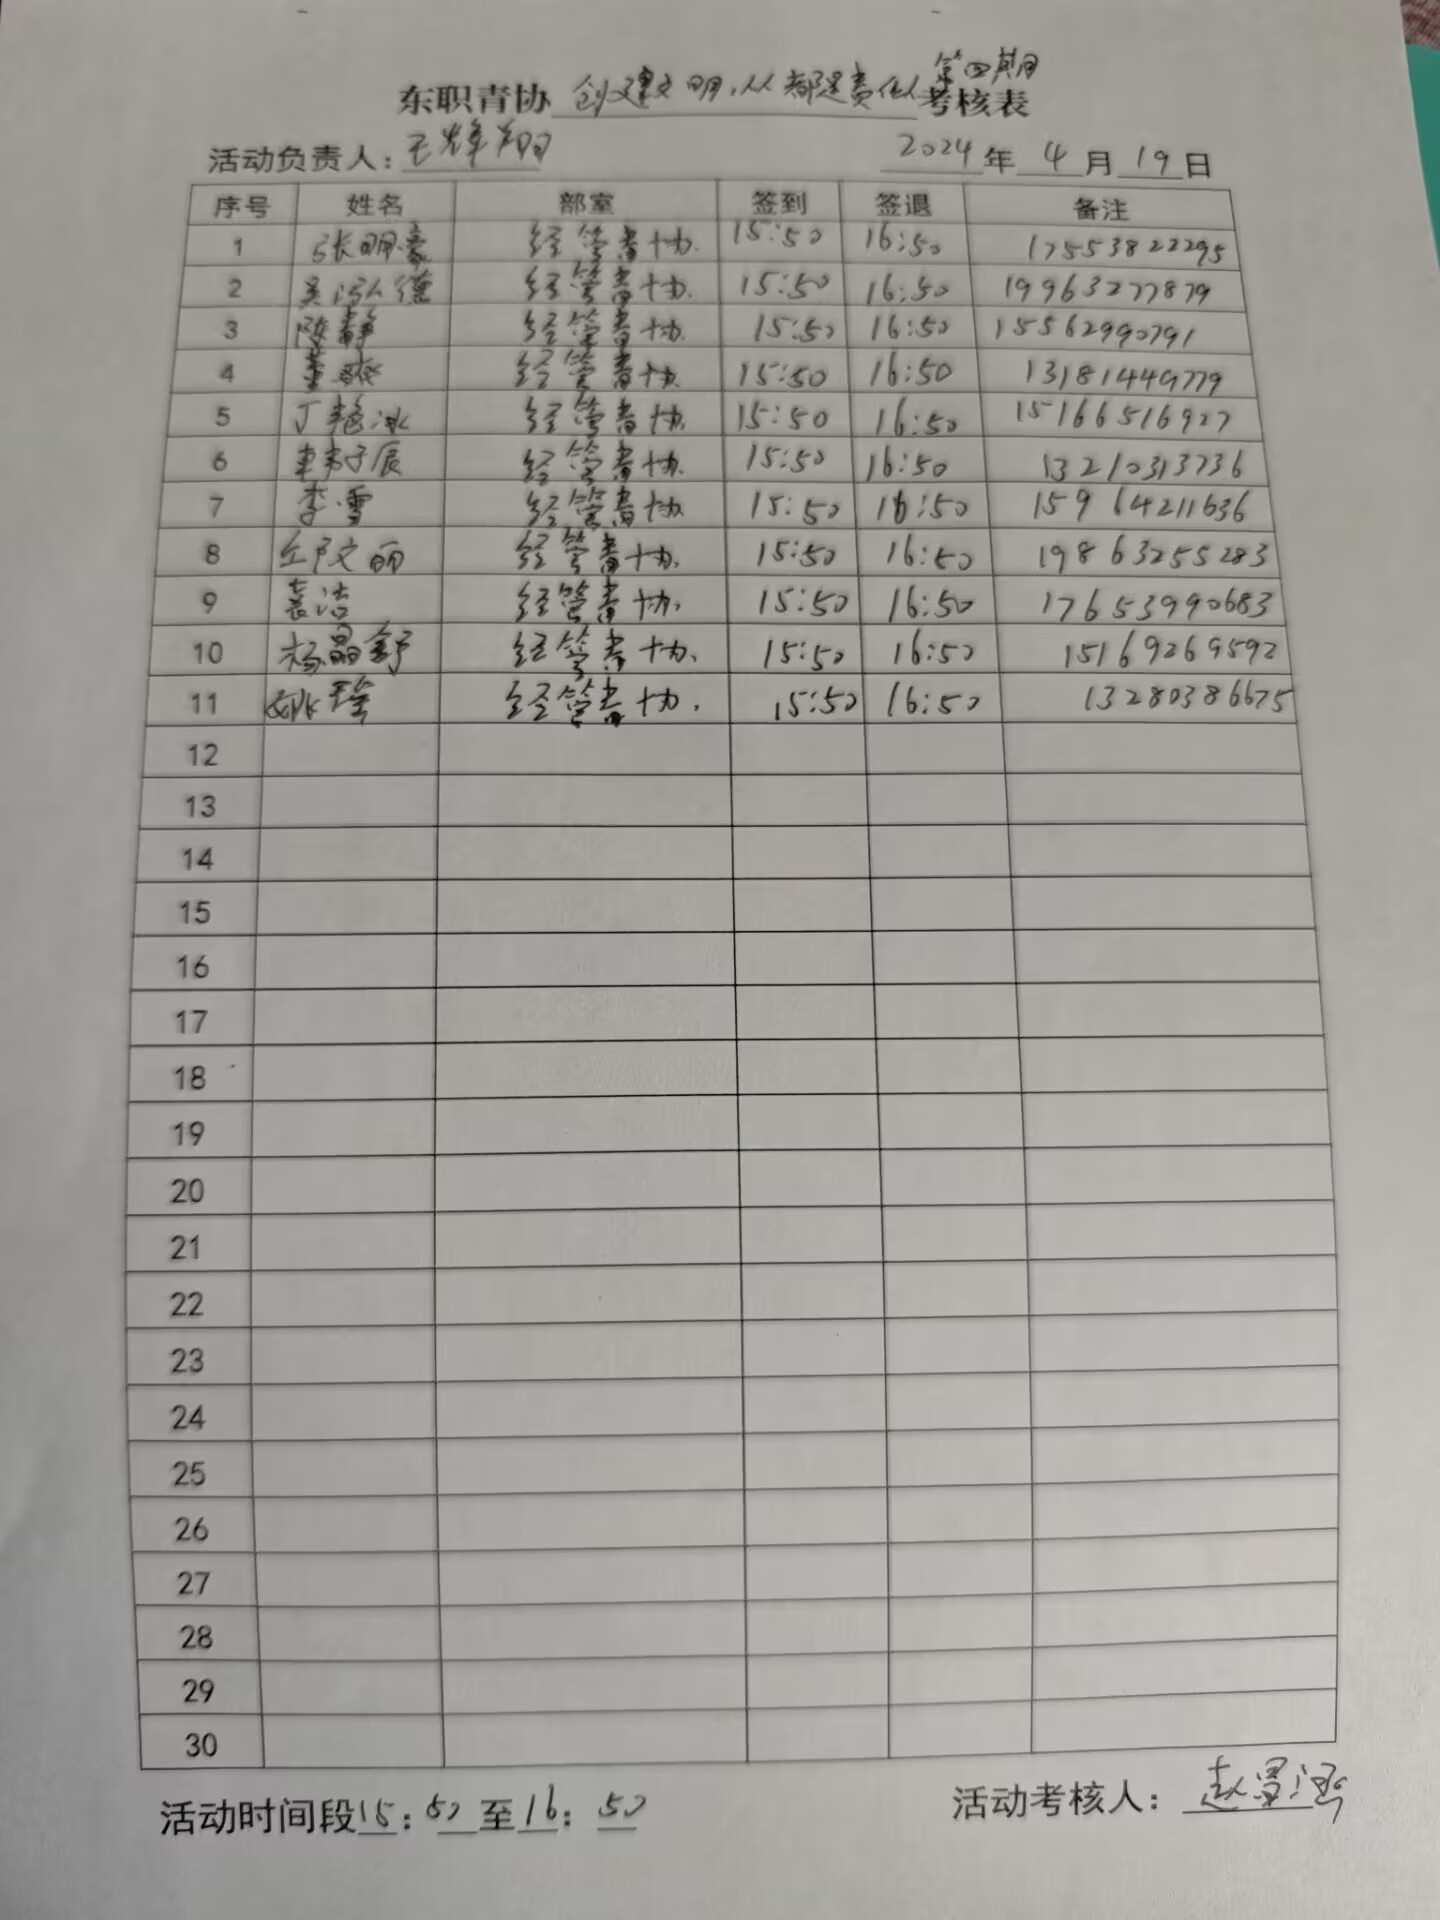 第四期
东职青协 创建文明,从都是责任人 考核表
活动负责人:王烽翔 2024年 4月 19日
序号 姓名 部室 签到 签退 备注
1 张明豪 经管青协. 15:50 16:50 17553822295
2 经管青协. 15:50 16:50 19963277879
3 陈静 经管青协. 15:50 16:50 15562990791
4 经管青协. 15:50 16:50 13181449779
5 丁艳冰 经管青协. 15:50 16:50 15166516927
6 韩子辰 经管青协. 15:50 16:50 13210313736
7 李雪 经管青协. 15:50 16:50 15964211636
8 文丽 经管青协. 15:50 16:50 19863255283
9 袁洁 经管青协. 15:50 16:50 17653990683
10 杨晶舒 经管青协. 15:50 16:50 15169269592
11 姚瑶 经管青协. 15:50 16:50 13280386675
12
13
14
15
16
17
18
19
20
21
22
23
24
25
26
27
28
29
30
活动时间段15:50至16:50 活动考核人:赵曼涵